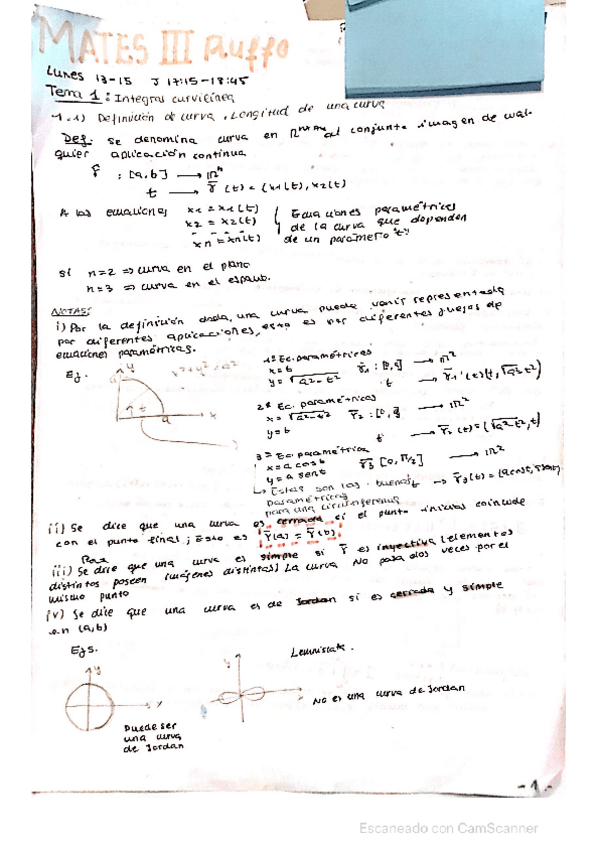 MATES III Ruffo
Lunes 13-15 J 17:15-18:45
Tema 1: Integral curvilínea
1.1) Definición de curva. Longitud de una curva
Def. se denomina curva en al conjunto imagen de cual-
quier aplicación continua
r̄ : [a,b] → ℝⁿ
t → r̄(t) = (x₁(t), x₂(t)
A las ecuaciones x₁ = x₁(t)
x₂ = x₂(t)
xn = xn(t)
Ecuaciones paramétricas
de la curva que dependen
de un parámetro "t"
si n=2 ⇒ curva en el plano
n=3 ⇒ curva en el espacio.
NOTAS:
i) Por la definición dada, una curva puede venir representada
por diferentes aplicaciones, esto es por diferentes juegos de
ecuaciones paramétricas.
Ej. y x²+y²=a²
t a x
1ª Ec. paramétricas
x=t
y=√a²-t² r̄₁ : [0,] → ℝ²
t → r̄₁(t)(t, √a²-t²)
2ª Ec. paramétricas
x=√a²-t² r̄₂ : [0,] → ℝ²
y=t
t → r̄₂(t)=(√a²-t², t)
3ª Ec. paramétrica
x=a cost r̄₃ [0, π/2] → ℝ²
y=a sent
↳ Estas son las buenas t → r̄₃(t)=(acost,
paramétricas
para una circunferencia
ii) Se dice que una curva es cerrada si el punto inicial coincide
con el punto final; Esto es r̄(a) = r̄(b)
iii) Se dice que una curva es simple si r̄ es inyectiva (elementos
distintos poseen imágenes distintas) La curva no pasa dos veces por el
mismo punto
iv) Se dice que una curva es de Jordan si es cerrada y simple
en (a,b)
Ejs.
y x
Puede ser
una curva
de Jordan
Lemniscata.
y
No es una curva de Jordan
- 1 -
Escaneado con CamScanner